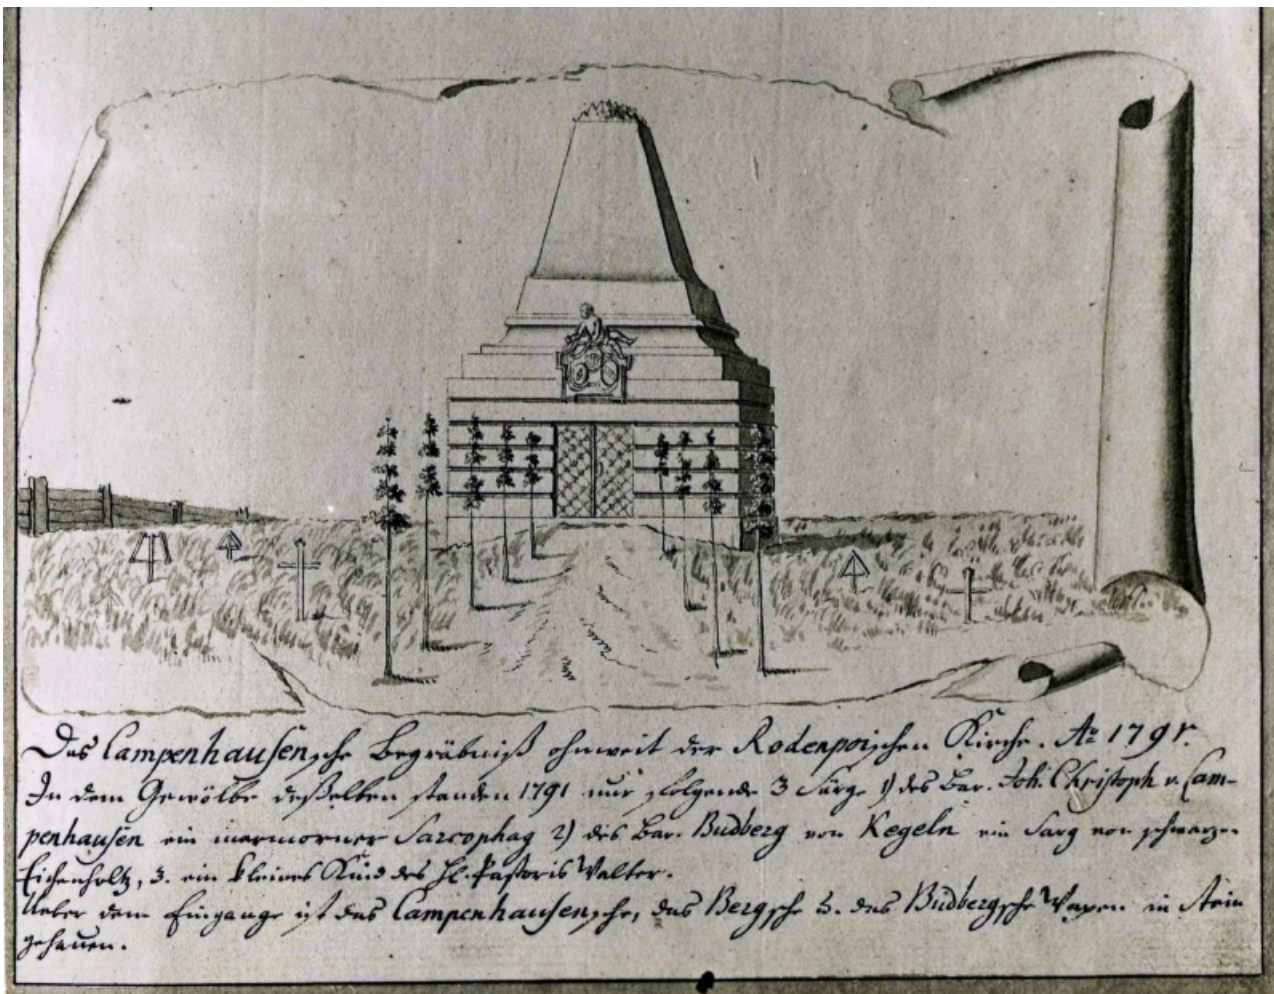 Das Campenhausensche Begräbniß ohnweit der Rodenpoischen Kirche. Aͦ 1791.
In dem Gewölbe desselben standen 1791 nur folgende 3 Särge 1) des Bar. Joh. Christoph v. Cam-
penhausen ein marmorner Sarcophag 2) des Bar. Budberg von Kegeln ein Sarg von schwarzen
Eichenholtz, 3. ein kleines Kind des HE. Pastoris Walter.
Ueber dem Eingange ist das Campenhausensche, das Bergsche u. das Budbergsche Wapen in Stein
gehauen.